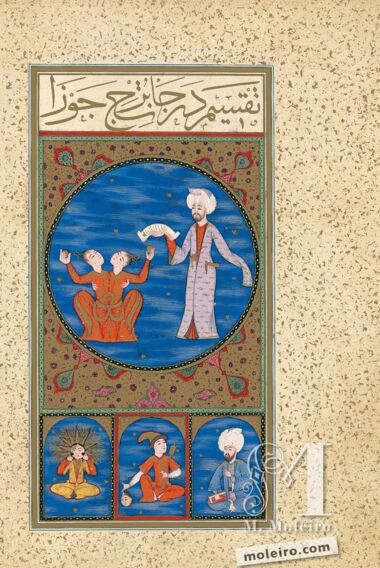 تقسیم درجات برج جوزا
M
M. Moleiro
moleiro.com